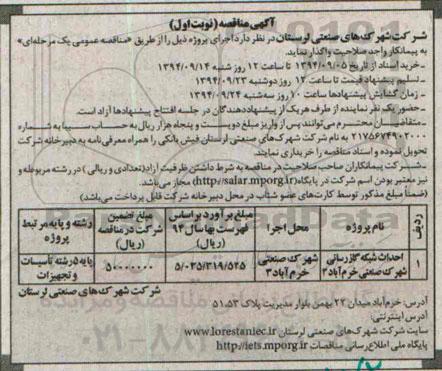 آگهی مناقصه (نوبت اول)
شرکت شهرک‌های صنعتی لرستان در نظر دارد اجرای پروژه ذیل را از طریق «مناقصه عمومی یک مرحله‌ای»
به پیمانکار واجد صلاحیت واگذار نماید.
- خرید اسناد از تاریخ ۱۳۹۴/۰۹/۰۵ تا ساعت ۱۲ روز شنبه ۱۳۹۴/۰۹/۱۴
- تسلیم پیشنهاد قیمت تا ساعت ۱۲ روز دوشنبه ۱۳۹۴/۰۹/۲۳
- زمان گشایش پیشنهادها ساعت ۱۰ روز سه‌شنبه ۱۳۹۴/۰۹/۲۴
- حضور یک نفر نماینده از طرف هر یک از پیشنهاددهندگان در جلسه افتتاح پیشنهادها آزاد است.
- متقاضیان محترم می‌توانند پس از واریز مبلغ دویست و پنجاه هزار ریال به حساب سیبا به شماره
۲۱۷۵۶۷۴۹۰۲۰۰۰ به نام شرکت شهرک‌های صنعتی لرستان فیش بانکی را همراه معرفی‌نامه به دبیرخانه شرکت
تحویل نموده و اسناد مناقصه را خریداری نمایند.
- شرکت پیمانکاران صاحب صلاحیت در مناقصه به شرط داشتن ظرفیت آزاد (تعدادی و ریالی) در رشته مربوطه و
نیز معتبر بودن اسم شرکت در پایگاه (http://salar.mporg.ir) مجاز می‌باشد.
(ضمناً مبلغ مذکور توسط کارت‌های عضو شتاب در محل دبیرخانه شرکت قابل پرداخت می‌باشد)
ردیف نام پروژه محل اجرا مبلغ برآورد بر اساس فهرست بها سال ۹۴ (ریال) مبلغ تضمین شرکت در مناقصه (ریال) رشته و پایه مرتبط پروژه
۱ احداث شبکه گازرسانی شهرک صنعتی خرم‌آباد ۳ شهرک صنعتی خرم‌آباد ۳ ۵/۰۳۵/۳۱۹/۵۲۵ ۵۰۰۰۰۰۰۰ پایه ۵ رشته تأسیسات و تجهیزات
شرکت شهرک‌های صنعتی لرستان
آدرس: خرم‌آباد میدان ۲۲ بهمن بلوار مدیریت پلاک ۵۱،۵۳
آدرس اینترنتی:
سایت شرکت شهرک‌های صنعتی لرستان www.lorestaniec.ir
پایگاه ملی اطلاع‌رسانی مناقصات http://iets.mporg.ir